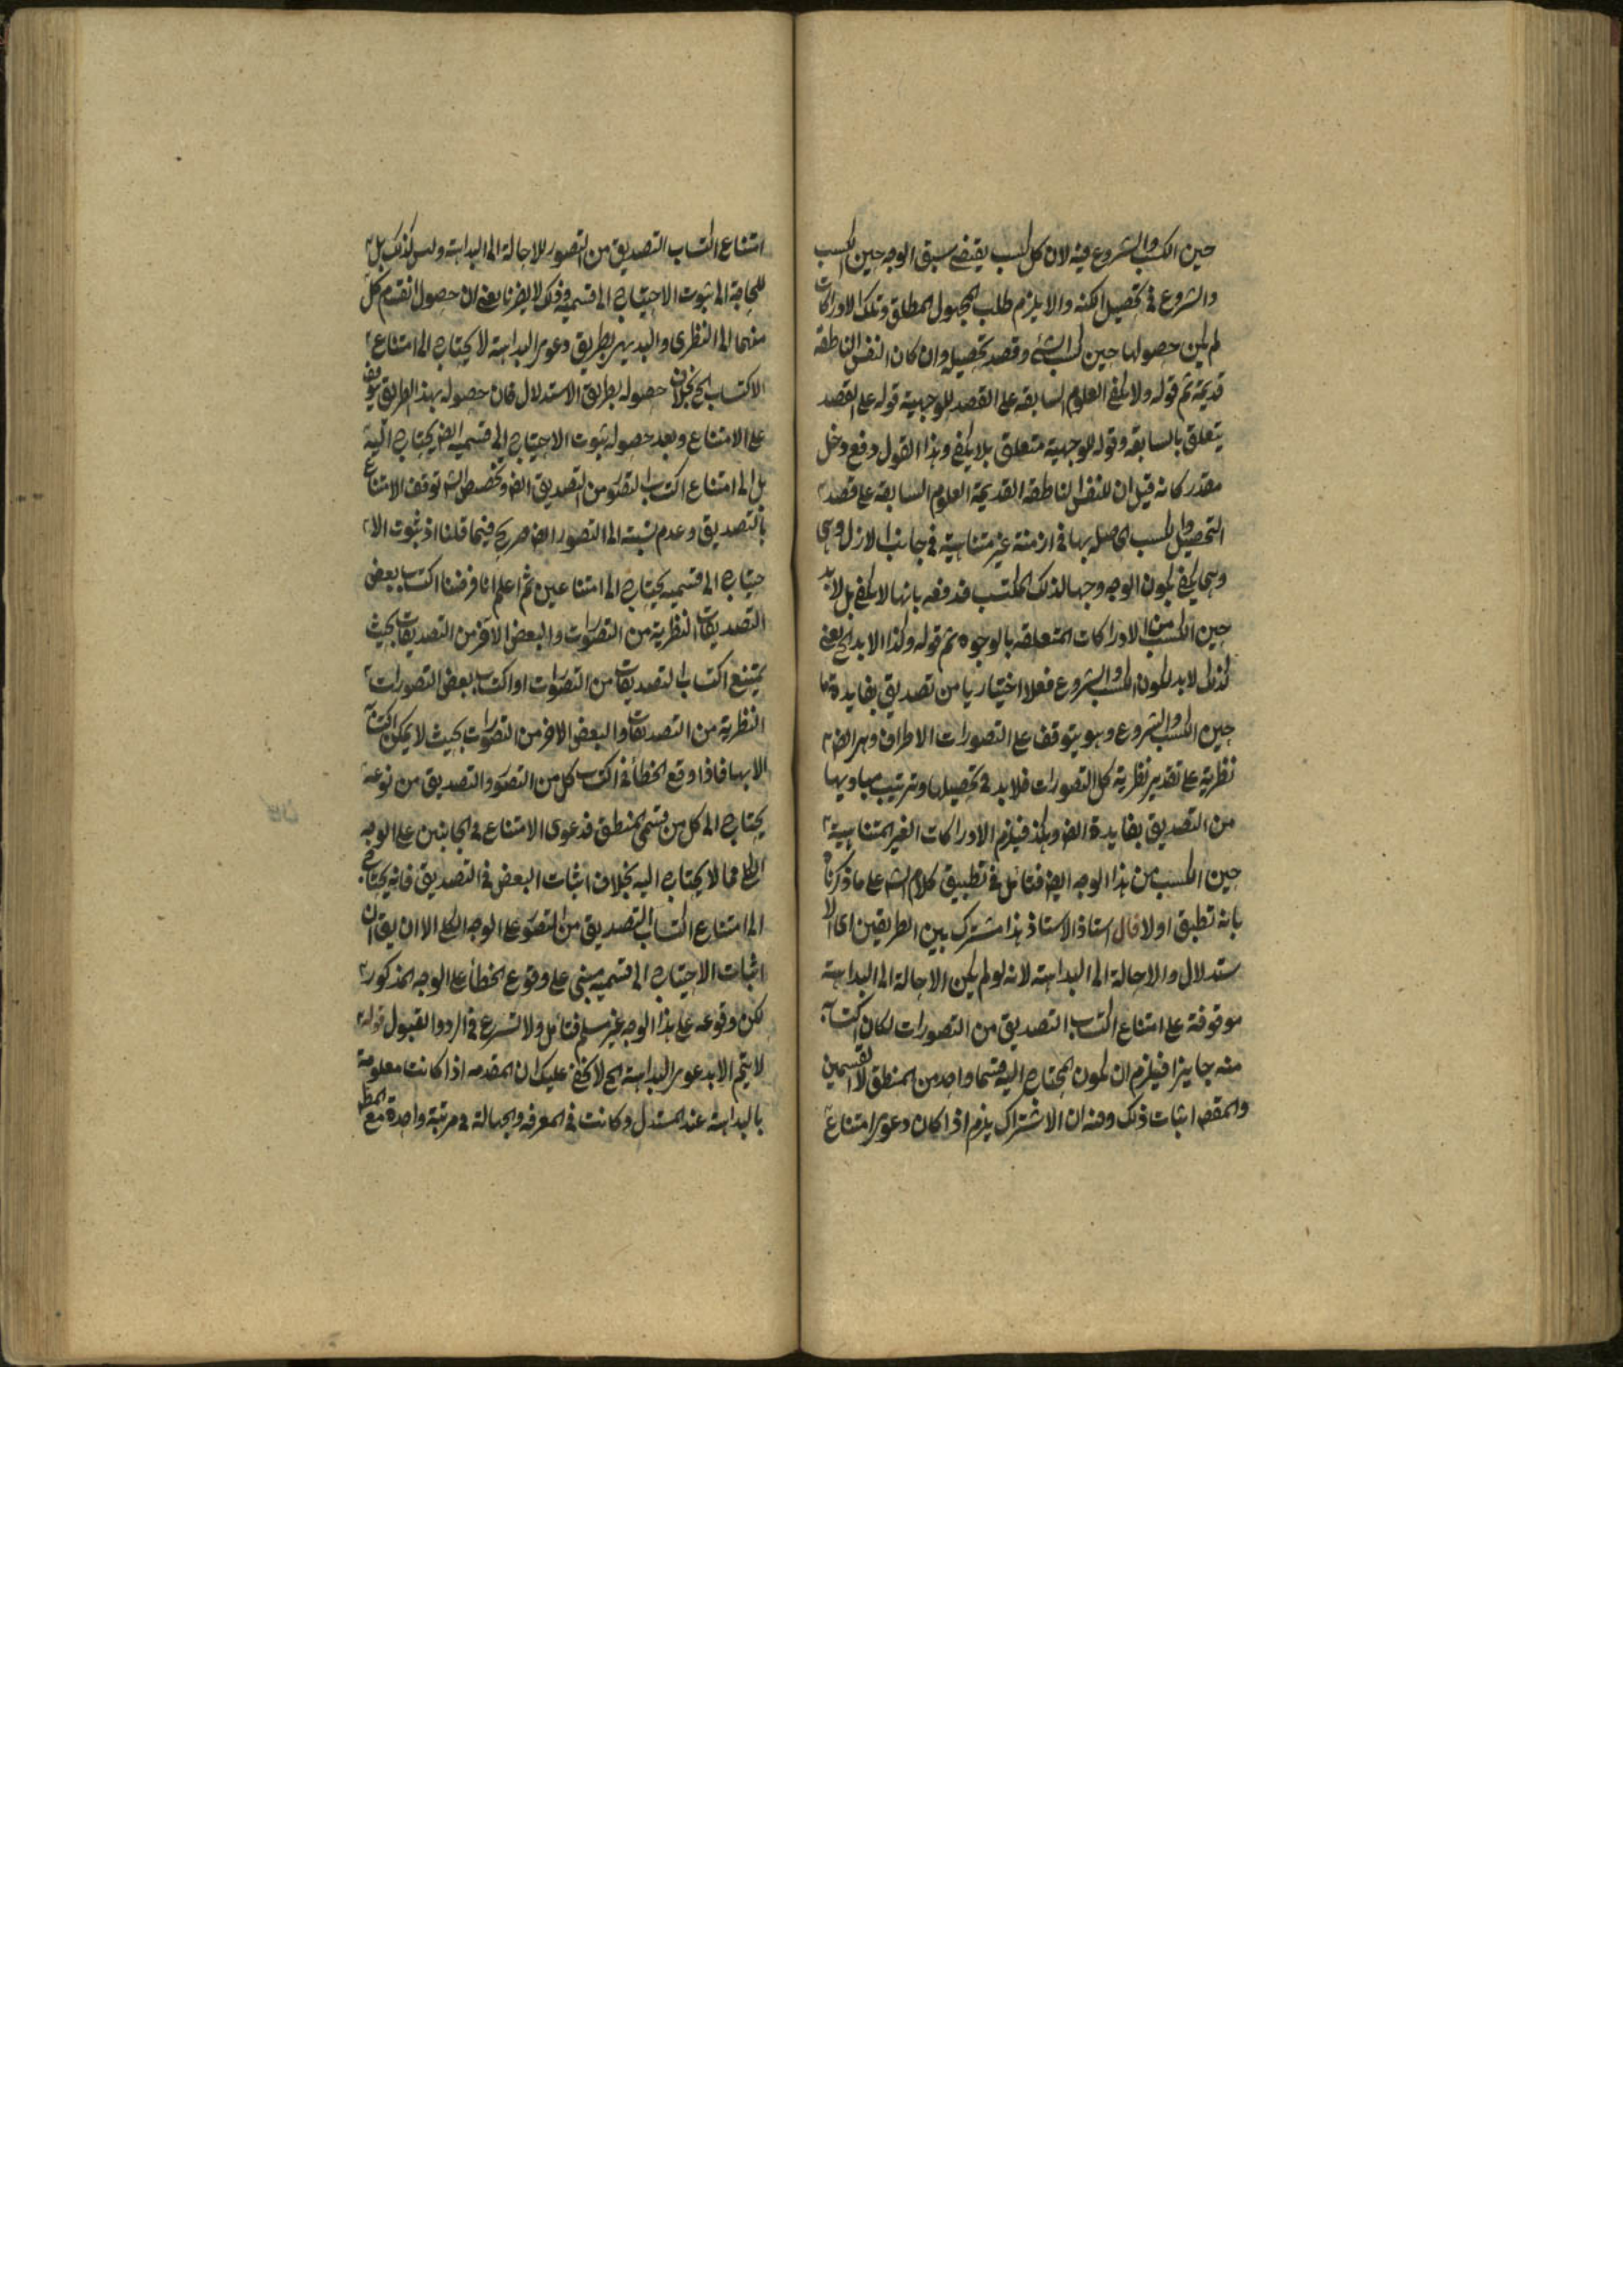 حين الكسب والشروع فيه لان كل كسب يقتضي سبق الوجه حين الكسب
والشروع في تحصيل الكنه والا يلزم طلب المجهول المطلق وتلك الادراكات
لم يكن حصولها حين كسب الشئ وقصد تحصيله وان كان النفس الناطقة
قديمة ثم قوله ولا يكفي العلوم السابقة على القصد للوجهية قوله على القصد
يتعلق بالسابقة وقوله للوجهية متعلق بلا يكفي وهذا القول دفع دخل
مقدر كانه قيل ان للنفس الناطقة القديمة العلوم السابقة على قصد
التحصيل والكسب الحاصلة بها في ازمنة غير متناهية في جانب الازل وهي
يكفي لكون الوجه وجها لذلك المكتسب فدفعه بانها لا يكفي بل لابد
حين الكسب من الادراكات المتعلقة بالوجوه ثم قوله وكذا لابد الخ يعني
كذلك لابد لكون الكسب والشروع فعلا اختياريا من تصديق بفايدة ما
حين الكسب والشروع وهو يتوقف على التصورات الاطراف وهي ايضا
نظرية على تقدير نظرية كل التصورات فلابد في تحصيلها وترتيب مباديها
من التصديق بفايدة ايض وهكذا فيلزم الادراكات الغير المتناهية
حين الكسب من هذا الوجه ايض فتامل في تطبيق كلام الش على ما ذكرنا
بانه تطبق اولا قال استاذ الاستاذ هذا مشترك بين الطريقين اي الا
ستدلال والاحالة الى البداهة لانه لو لم يكن الاحالة الى البداهة
موقوفة على امتناع اكتساب التصديق من التصورات لكان اكتسابه
منه جايزا فيلزم ان يكون المحتاج اليه قسما واحدا من المنطق لا القسمين
والمقص اثبات ذلك وفيه ان الاشتراك يلزم اذا كان دعوى امتناع
امتناع اكتساب التصديق من التصور للاحالة الى البداهة وليس كذلك بل
للحاجة الى ثبوت الاحتياج الى قسميه وذلك لا يضرنا يعني ان حصول انقسام كل
منهما الى النظري والبديهي بطريق دعوى البداهة لا يحتاج الى امتناع
الاكتساب الخ بخلاف حصوله بطريق الاستدلال فان حصوله بهذا الطريق يتوقف
على الامتناع وبعد حصوله ثبوت الاحتياج الى قسميه ايض يحتاج اليه
بل الى امتناع اكتساب التصور من التصديق ايض وتخصيص الش توقف الامتناع
بالتصديق وعدم نسبته الى التصور ايض صريح فيما قلنا اذ ثبوت الا
حتياج الى قسميه يحتاج الى امتناعين ثم اعلم انا فرضنا اكتساب بعض
التصديقات النظرية من التصورات والبعض الاخر من التصديقات بحيث
يمتنع اكتساب التصديقات من التصورات او اكتساب بعض التصورات
النظرية من التصديقات والبعض الاخر من التصورات بحيث لا يمكن اكتسابه
الا بها فاذا وقع الخطأ في اكتساب كل من التصور والتصديق من نوعه
يحتاج الى كل من قسمي المنطق فدعوى الامتناع في الجانبين على الوجه
الكلي مما لا يحتاج اليه بخلاف اثبات البعض في التصديق فانه يحتاج
الى امتناع اكتساب التصديق من التصور على الوجه الكلي الا ان يقال ان
اثبات الاحتياج الى قسميه مبني على وقوع الخطأ على الوجه المذكور
لكن وقوعه على هذا الوجه غير مسلم فتامل ولا تسرع في الرد والقبول قوله
لا يتم الا بدعوى البداهة الخ لا يخفى عليك ان المقدمه اذا كانت معلومة
بالبداهة عند المستدل وكانت في المعرفة والجهالة في مرتبة واحدة مع المط